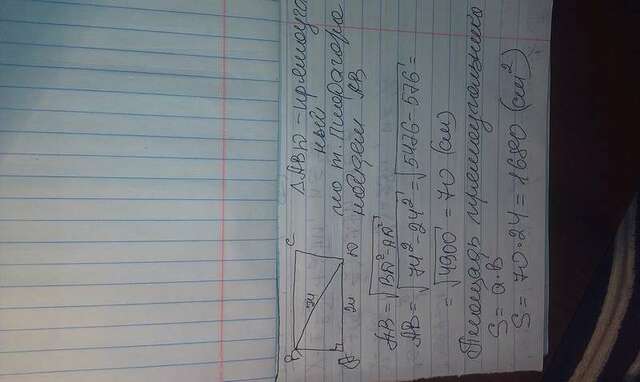 B C
74
A 24 D
ΔABD - прямоуголь
ный
по т. Пифагора
найдем AB
AB = √BD²-AD²
AB = √74²-24² = √5476-576 =
= √4900 = 70 (см)
Площадь прямоугольника
S = a·b
S = 70·24 = 1680 (см²)